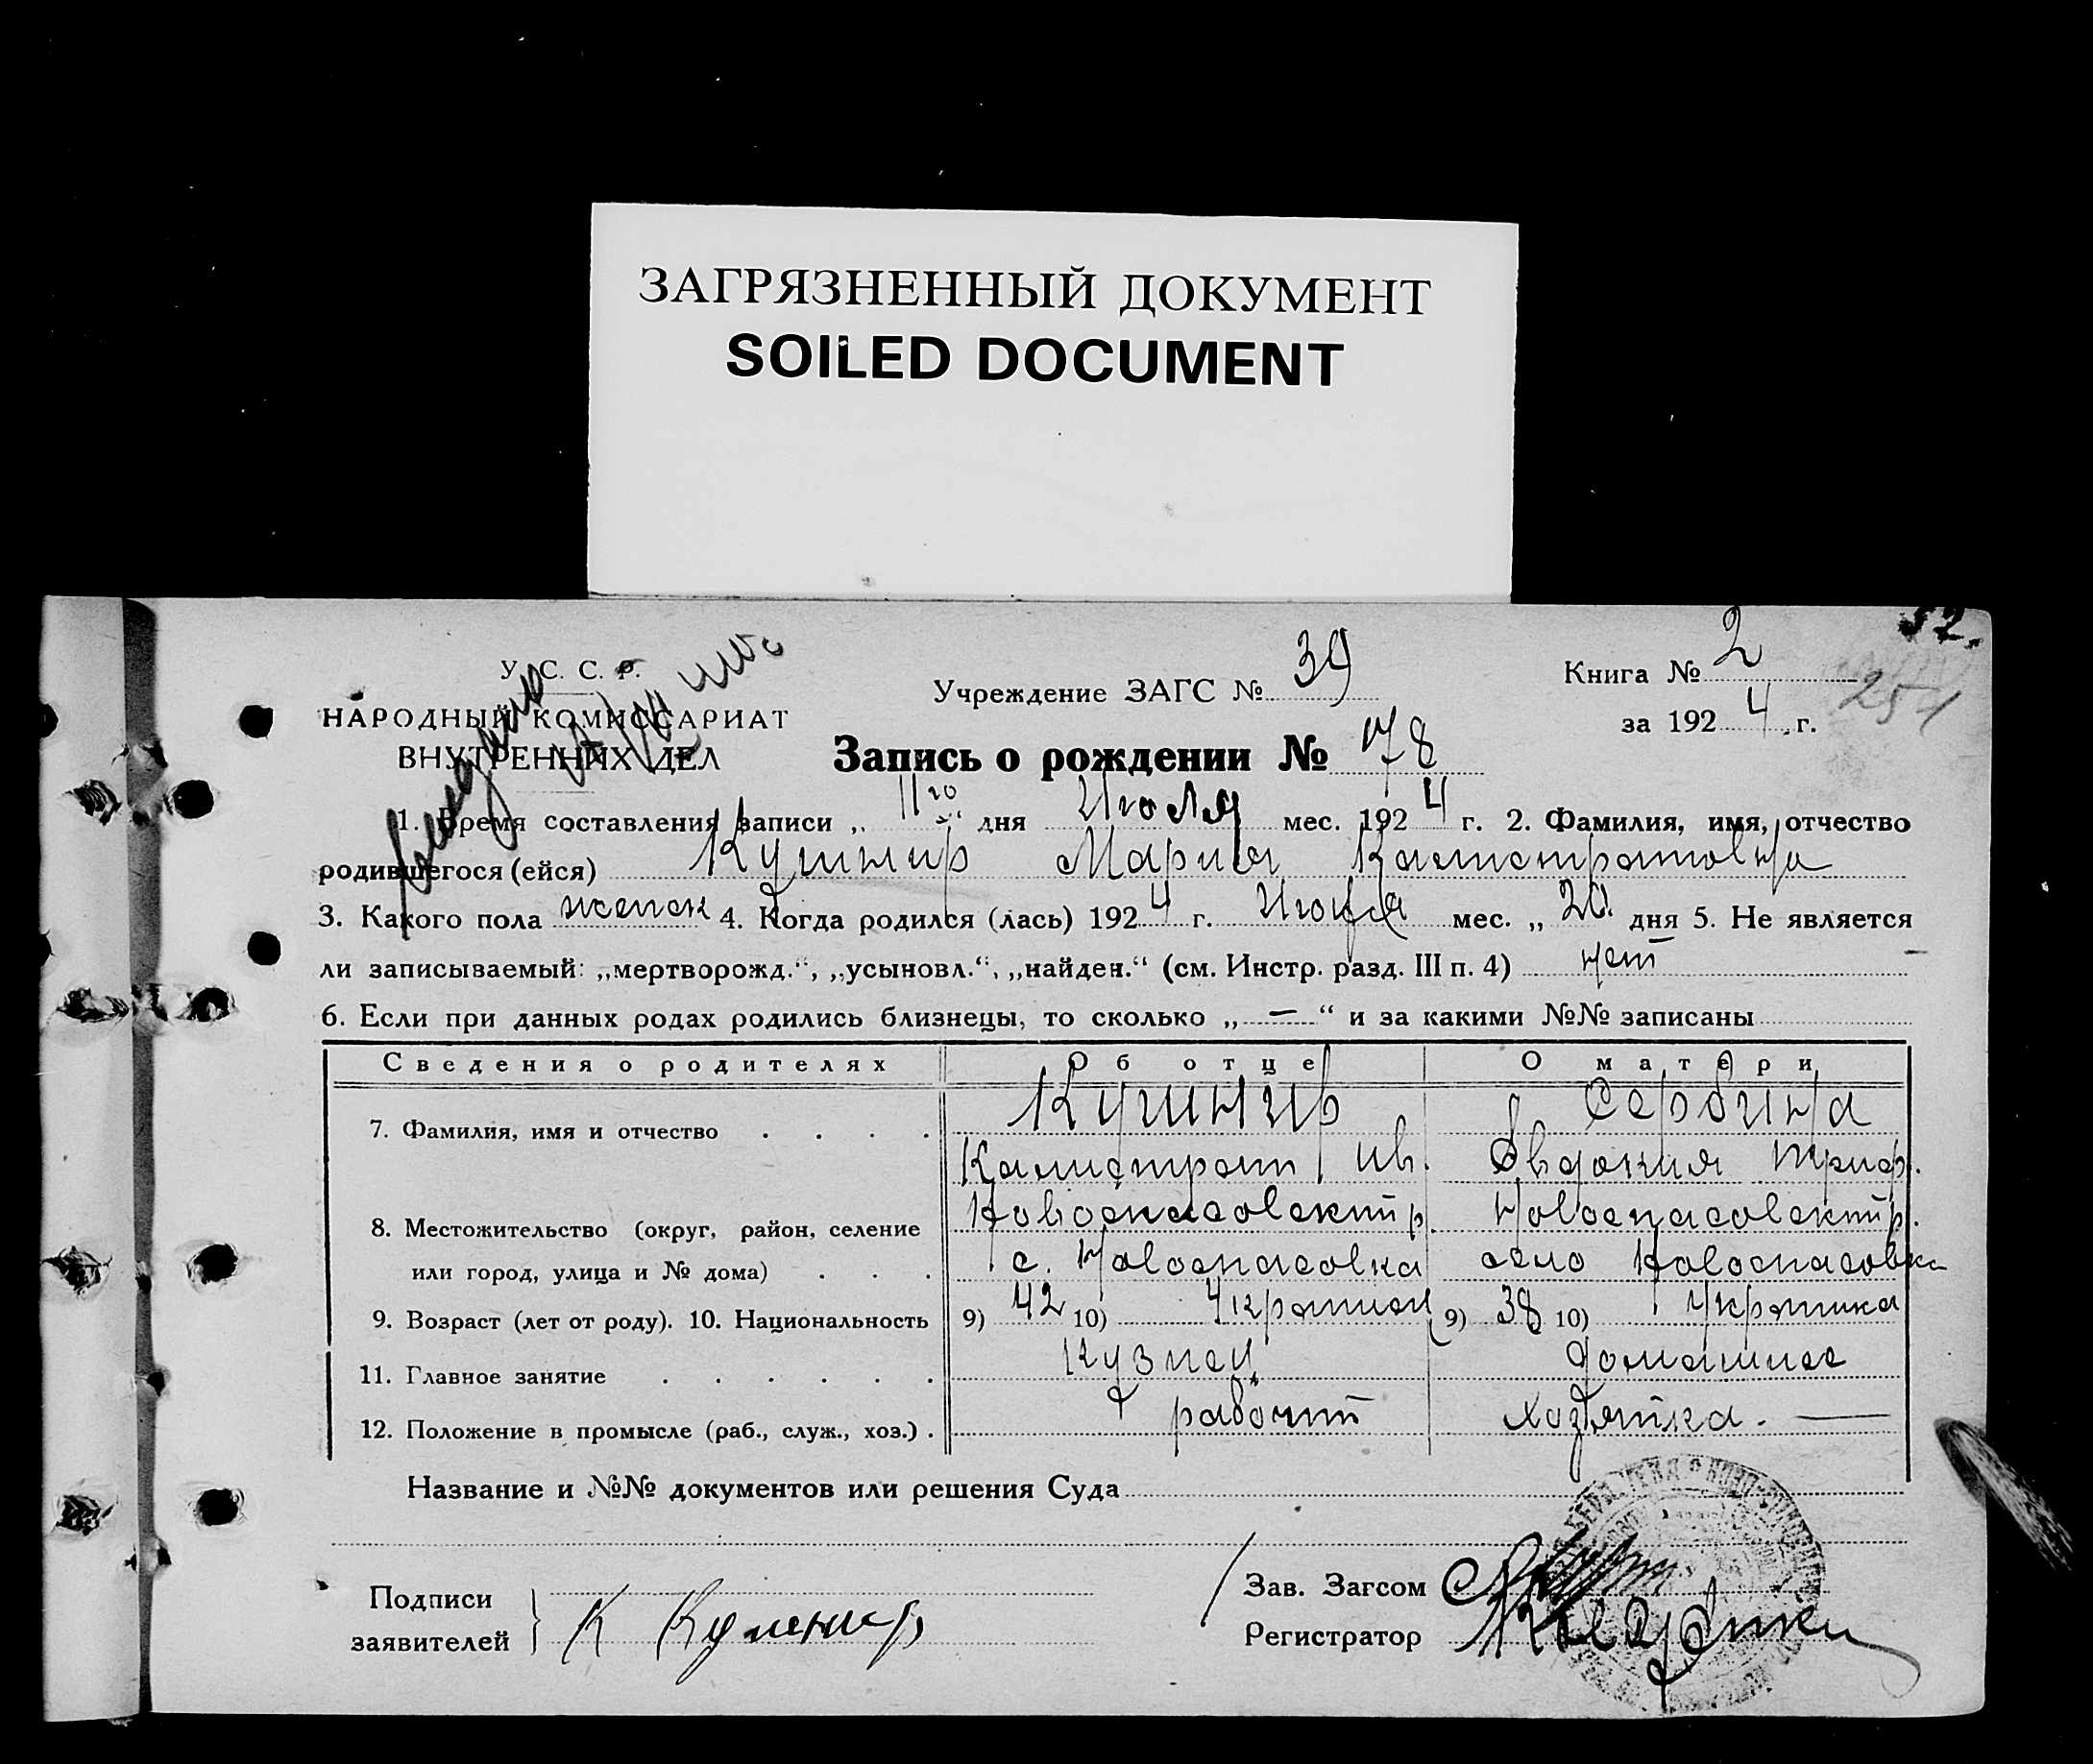 ЗАГРЯЗНЕННЫЙ ДОКУМЕНТ
SOILED DOCUMENT
52.
У. С. С. Р.
НАРОДНЫЙ КОМИССАРИАТ
ВНУТРЕННИХ ДЕЛ
Учреждение ЗАГС № 39
Книга № 2
за 1924 г.
Запись о рождении № 178
1. Время составления записи „ 11го “ дня Июля мес. 1924 г. 2. Фамилия, имя, отчество
родившегося (ейся) Кушнир Мария Калистратовна
3. Какого пола женск 4. Когда родился (лась) 1924 г. мес. „ дня 5. Не является
ли записываемый: „мертворожд.“, „усыновл.“, „найден.“ (см. Инстр. разд. III п. 4) нет —
6. Если при данных родах родились близнецы, то сколько „ — “ и за какими №№ записаны
Сведения о родителях Об отце О матери
7. Фамилия, имя и отчество . . . . Кушнир Сербина
Калистрат Ив. Евдокия Триф.
8. Местожительство (округ, район, селение Новоспасовский р. Новоспасовский р.
или город, улица и № дома) . . . с. Новоспасовка село Новоспасовка
9. Возраст (лет от роду). 10. Национальность 9) 42 10) Украинец 9) 38 10) Украинка
11. Главное занятие . . . . . . Кузнец домашнее
12. Положение в промысле (раб., служ., хоз.) . рабочий хозяйка. —
Название и №№ документов или решения Суда
Подписи
заявителей } К Кушнир
Зав. Загсом
Регистратор